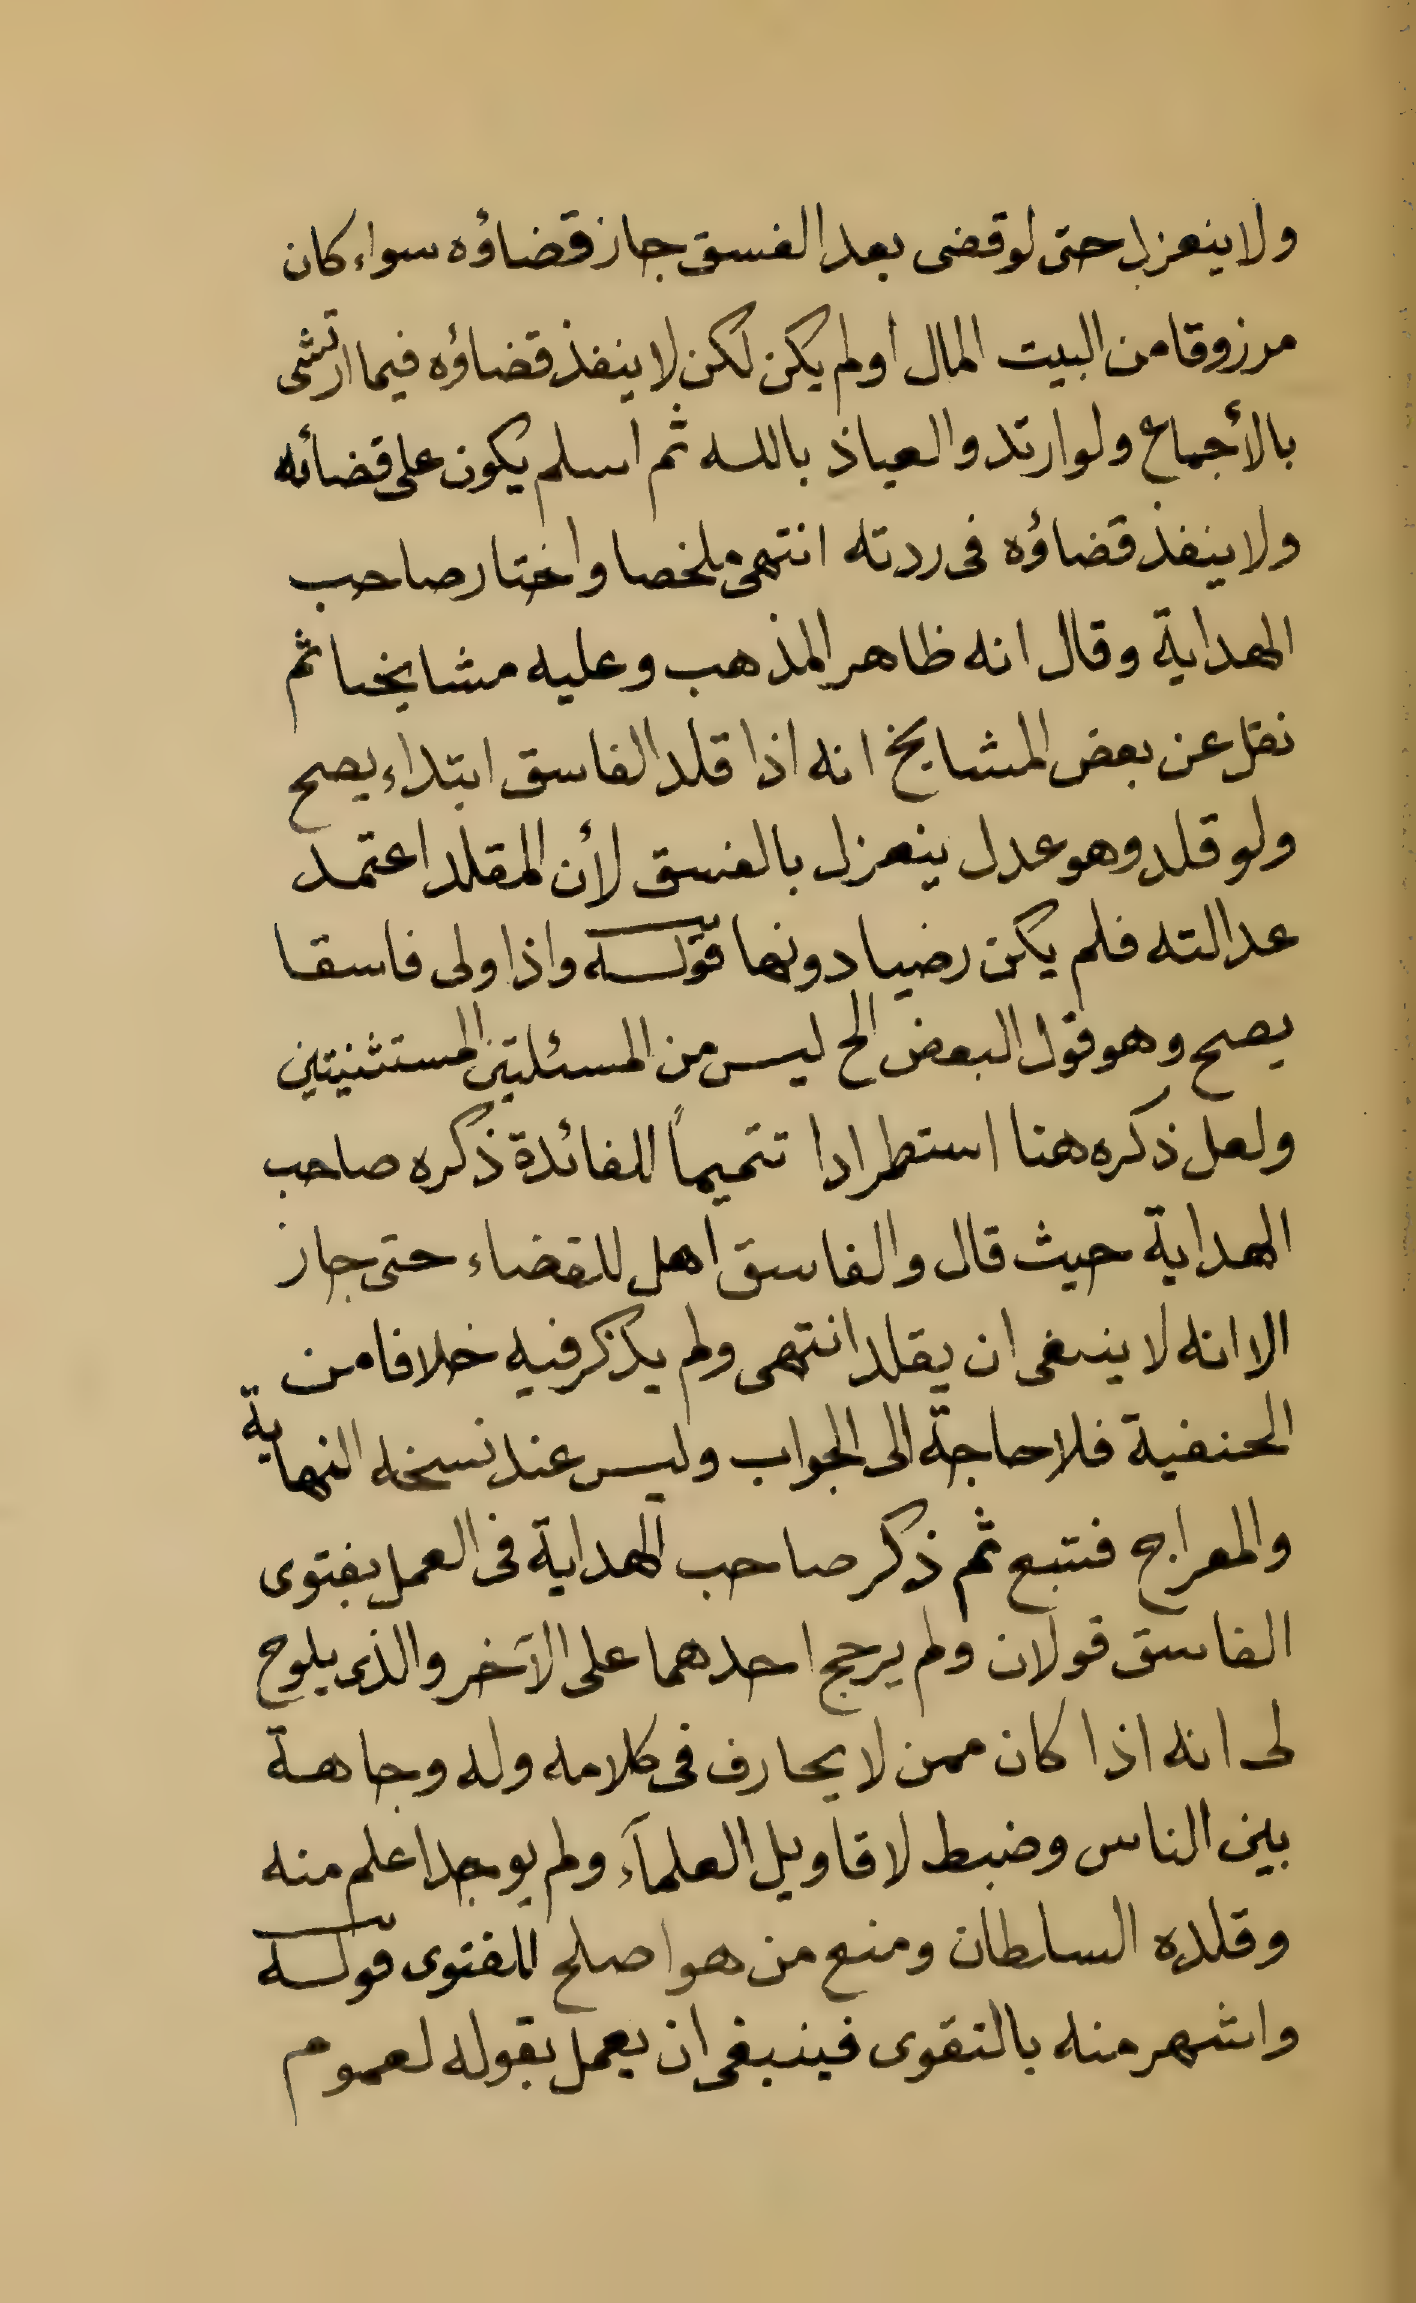 ولا ينعزل حتى لو قضى بعد الفسق جاز قضاؤه سواء كان
مرزوقا من البيت المال اولم يكن لكن لا ينفذ قضاؤه فيما ارتشى
بالأجماع ولو ارتد والعياذ بالله ثم اسلم يكون على قضائه
ولا ينفذ قضاؤه فى ردته انتهى ملخصا واختار صاحب
الهداية وقال انه ظاهر المذهب وعليه مشايخنا ثم
نقل عن بعض المشايخ انه اذا قلد الفاسق ابتداء يصح
ولو قلد وهو عدل ينعزل بالفسق لأن المقلد اعتمد
عدالته فلم يكن رضيا دونها قوله واذا ولى فاسقا
يصح وهو قول البعض الخ ليس من المسئلتين المستثنيتين
ولعل ذكره هنا استطرادا تتميماً للفائدة ذكره صاحب
الهداية حيث قال والفاسق اهل للقضاء حتى جاز
الا انه لا ينبغى ان يقلد انتهى ولم يذكر فيه خلافا من
الحنفية فلا حاجة الى الجواب وليس عند نسخه النهاية
والمعراج فتتبع ثم ذكر صاحب الهداية فى العمل بفتوى
الفاسق قولان ولم يرجح احدهما على الآخر والذى يلوح
لى انه اذا كان ممن لا يحارف فى كلامه وله وجاهة
بين الناس وضبط لاقاويل العلمآء ولم يوجد اعلم منه
وقلده السلطان ومنع من هو اصلح للفتوى قوله
واشهر منه بالتقوى فينبغى ان يعمل بقوله لعموم